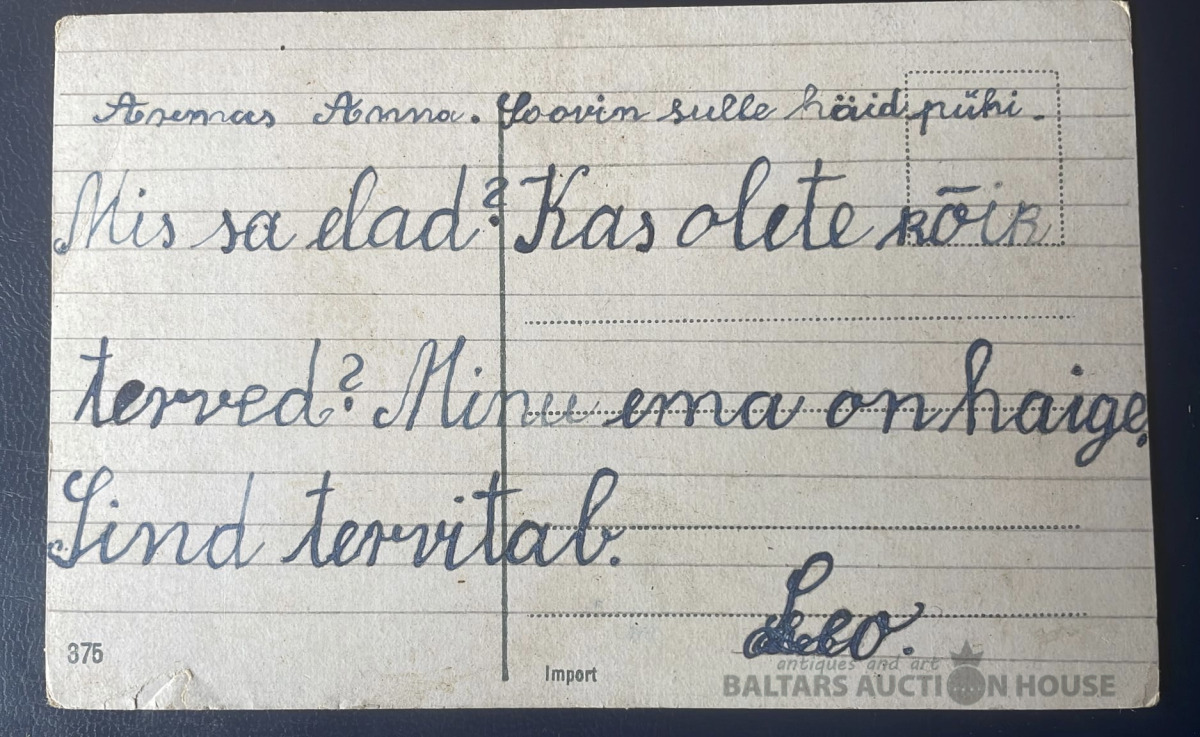 Armas Anna. Soovin sulle häid pühi.
Mis sa elad? Kas olete kõik
terved? Minu ema on haige.
Sind tervitab.
Leo.
375
Import
antiques and art
BALTARS AUCTION HOUSE